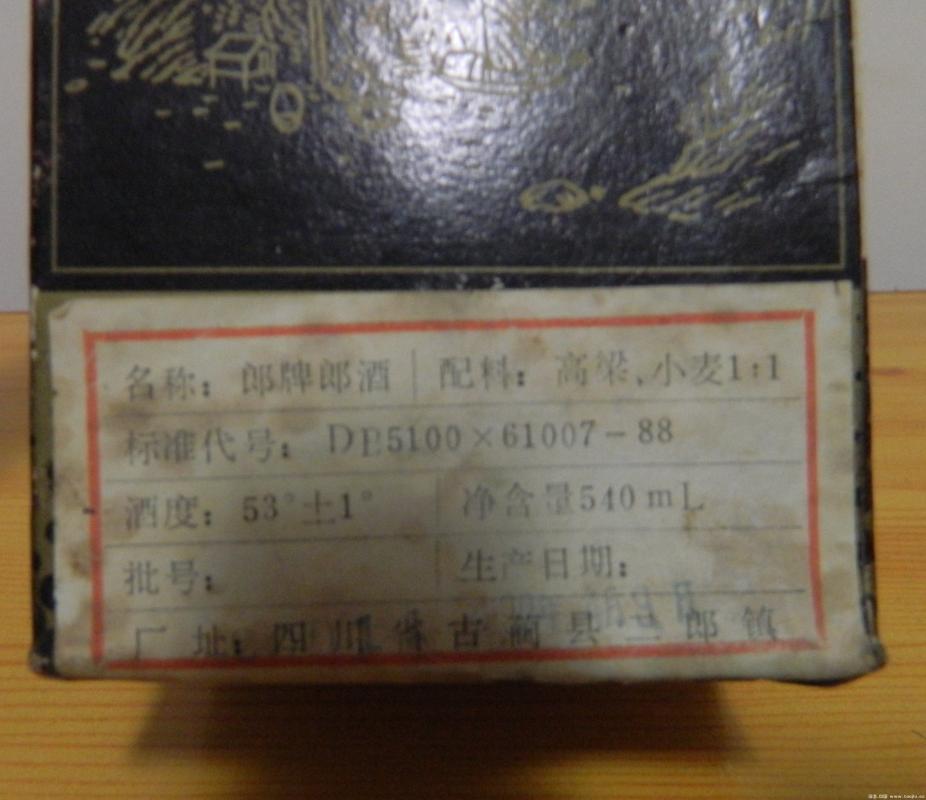 名称：郎牌郎酒 配料：高梁、小麦1:1
标准代号：DB5100×61007-88
酒度：53°±1° 净含量540mL
批号： 生产日期：
厂 址：四川省古蔺县二郎镇